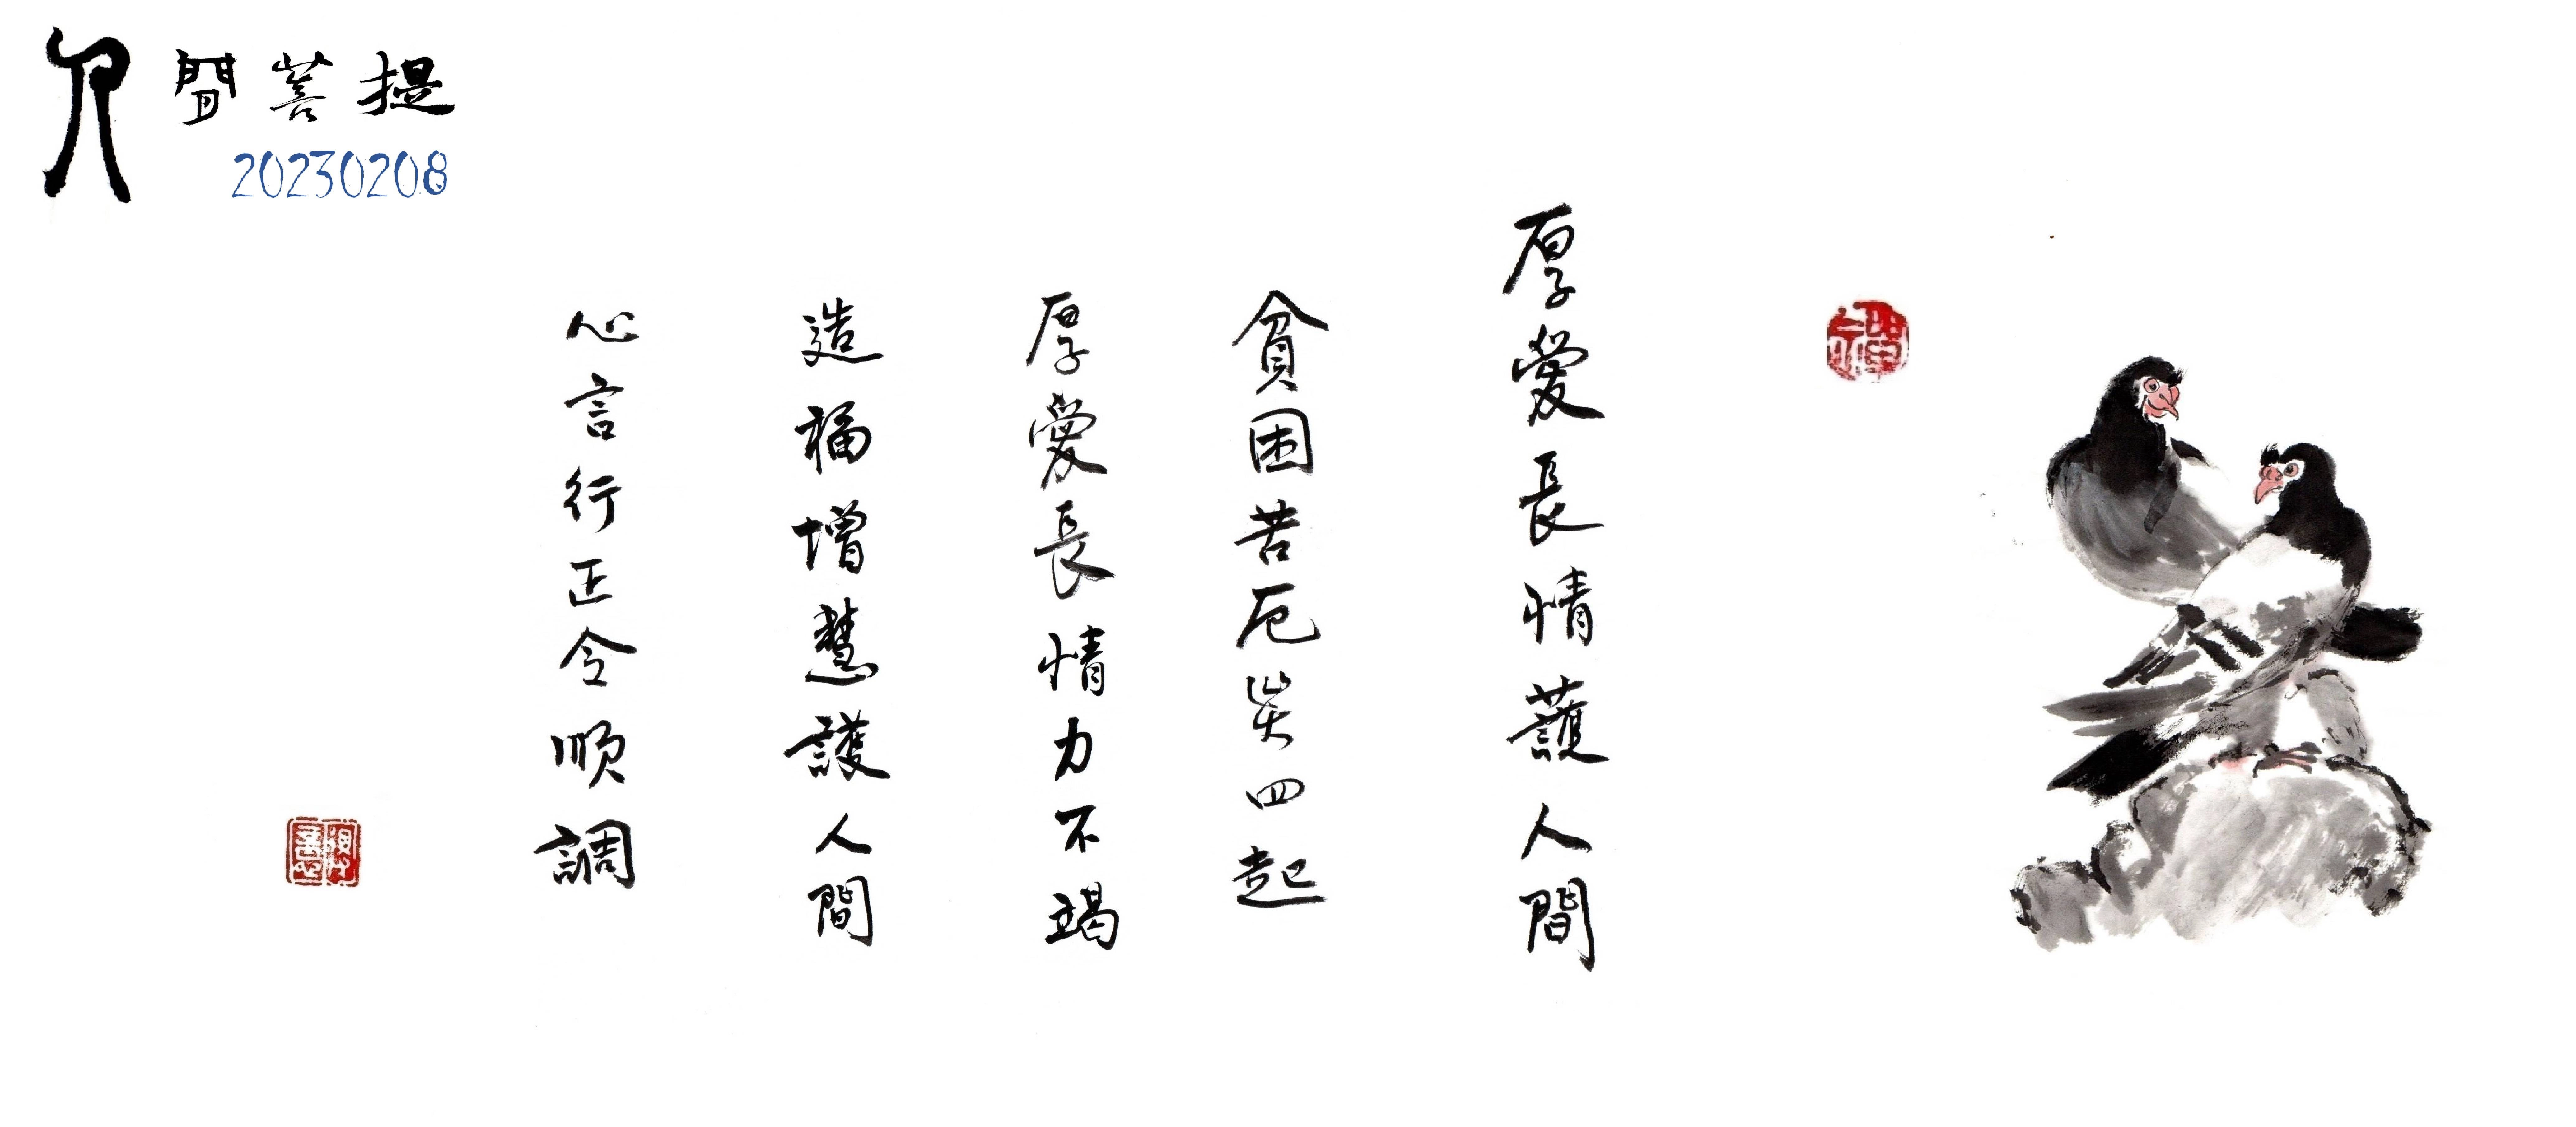 人間菩提
20230208
厚愛長情護人間
貧困苦厄災四起
厚愛長情力不竭
造福增慧護人間
心言行正令順調